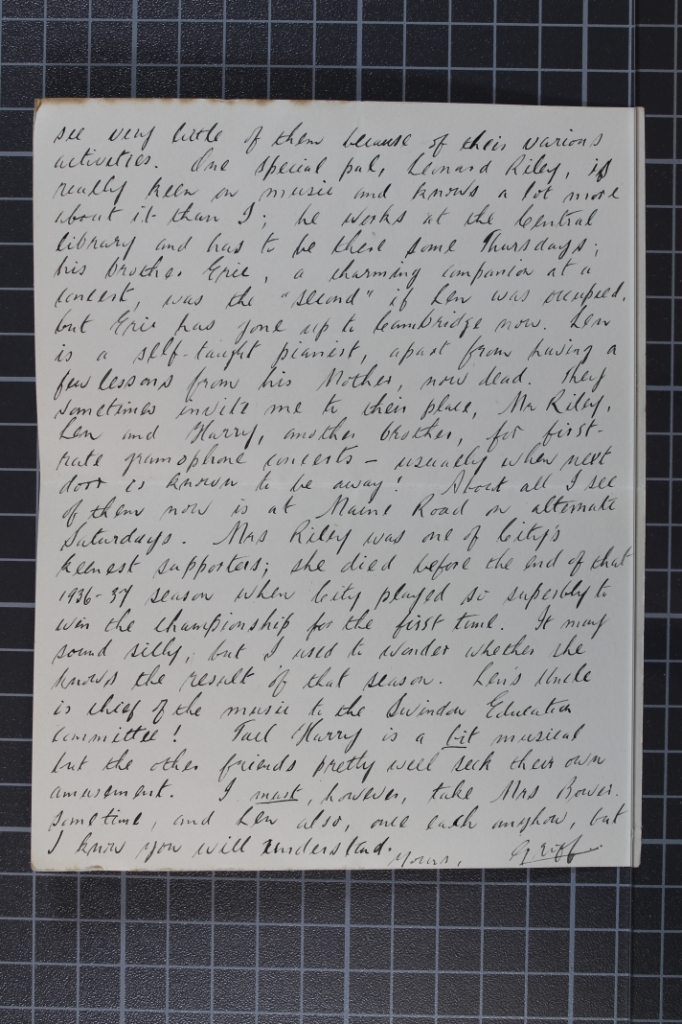 see very little of them because of their various
activities. One special pal, Leonard Riley, is
really keen on music and knows a lot more
about it than I; he works at the Central
library and has to be there some Thursdays;
his brother Eric, a charming companion at a
concert, was the "second" if Len was occupied.
but Eric has gone up to Cambridge now. Len
is a self-taught pianist, apart from having a
few lessons from his Mother, now dead. They
sometimes invite me to their place, Mr Riley,
Len and Harry, another brother, for first-
rate gramophone concerts – usually when next
door is known to be away! About all I see
of them now is at Maine Road on alternate
Saturdays. Mrs Riley was one of City's
keenest supporters; she died before the end of that
1936-37 season when City played so superbly to
win the championship for the first time. It may
sound silly, but I used to wonder whether she
knows the result of that season. Len's Uncle
is chief of the music to the Swindon Education
Committee! Harry is a bit musical
but the other friends pretty well seek their own
amusement. I must, however, take Mrs Bower
sometime, and Len also, once each anyhow, but
I know you will understand.
Yours, Griff